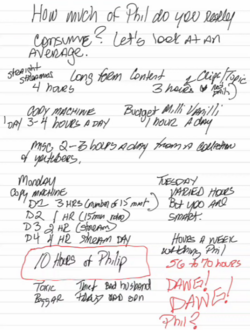 How much of Phil do you really
consume? Let's look at an
average.
straight streamers Long Form Content & Clips/Topic
4 hours 3 hours
Copy Machine Budget Milli Vanilli
1 Day 3-4 hours a day 1 hour a day
Misc 2-3 hours a day from a collection
of youtubers.
Monday TUESDAY
Copy MACHINE VARIED HOURS
D1 3 HRS (number of 15 mnt) But you ARE
D2 1 HR (15 min video) SMART.
D3 2 HR (stream)
D4 4 HR STREAM DAY HOURS A WEEK
watching Phil
10 Hours of Philip 56 to 70 hours
DAWG!
Toxic Thief Bad husband DAWG!
Beggar bad son Phil?